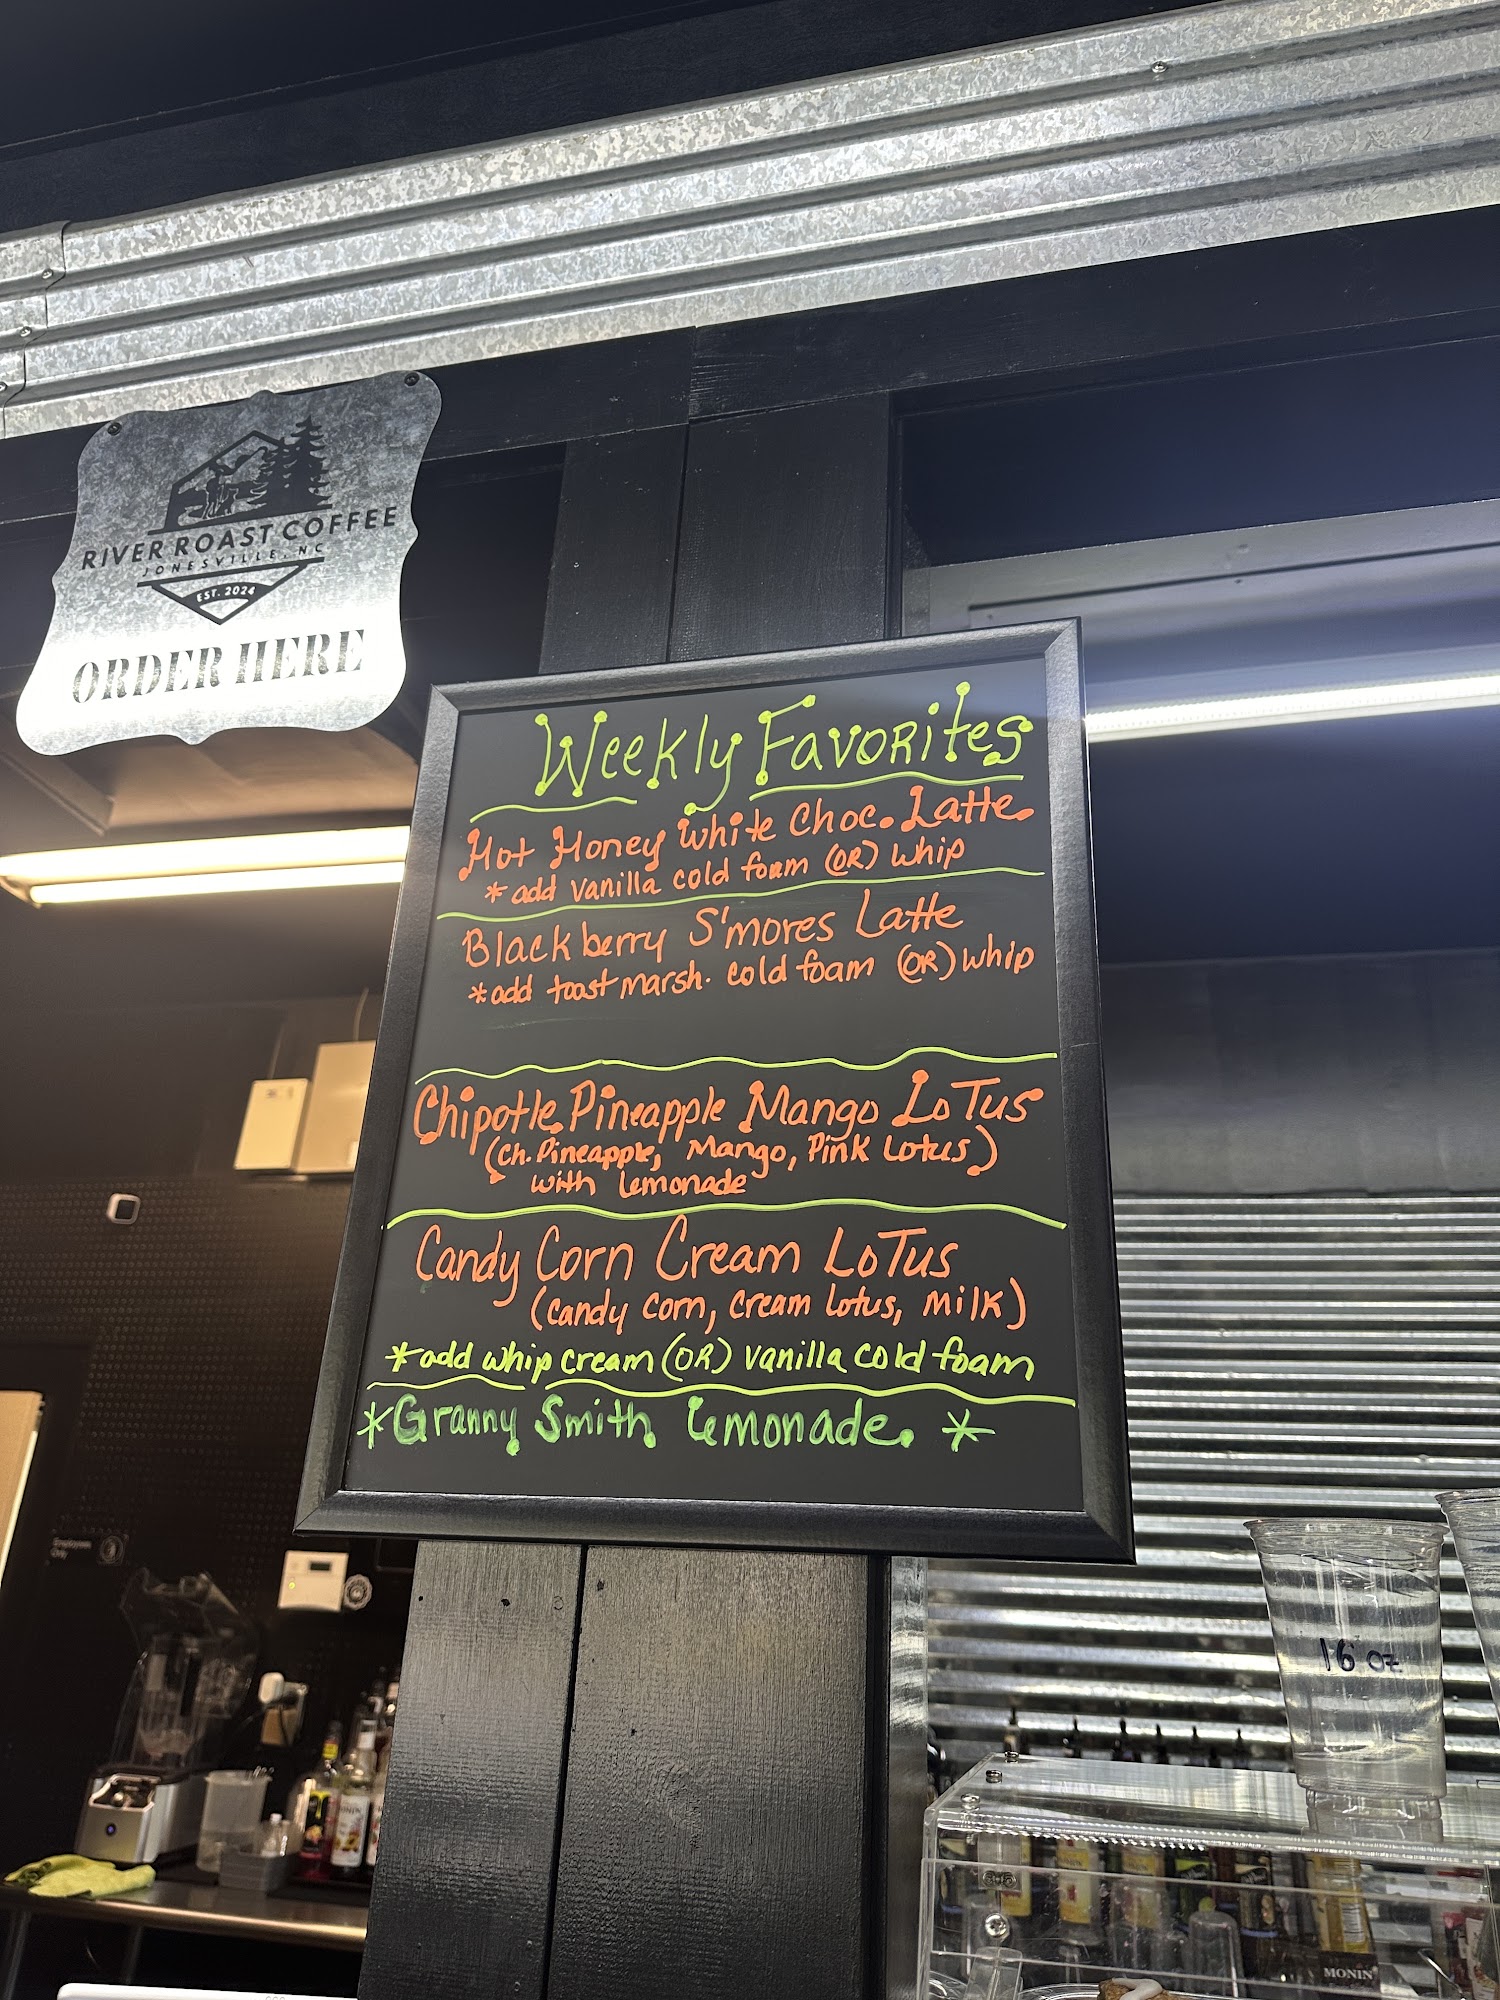 RIVER ROAST COFFEE
JONESVILLE, NC
EST. 2024
ORDER HERE
Weekly Favorites
Hot Honey White Choc. Latte
*add vanilla cold foam (OR) whip
Blackberry S'mores Latte
*add toast marsh. cold foam (OR) whip
Chipotle Pineapple Mango LoTus
(Ch. Pineapple, Mango, Pink Lotus)
with Lemonade
Candy Corn Cream LoTus
(candy corn, cream lotus, milk)
*add whip cream (OR) vanilla cold foam
*Granny Smith Lemonade *
Employees
Only
16 oz
MONIN
MONIN